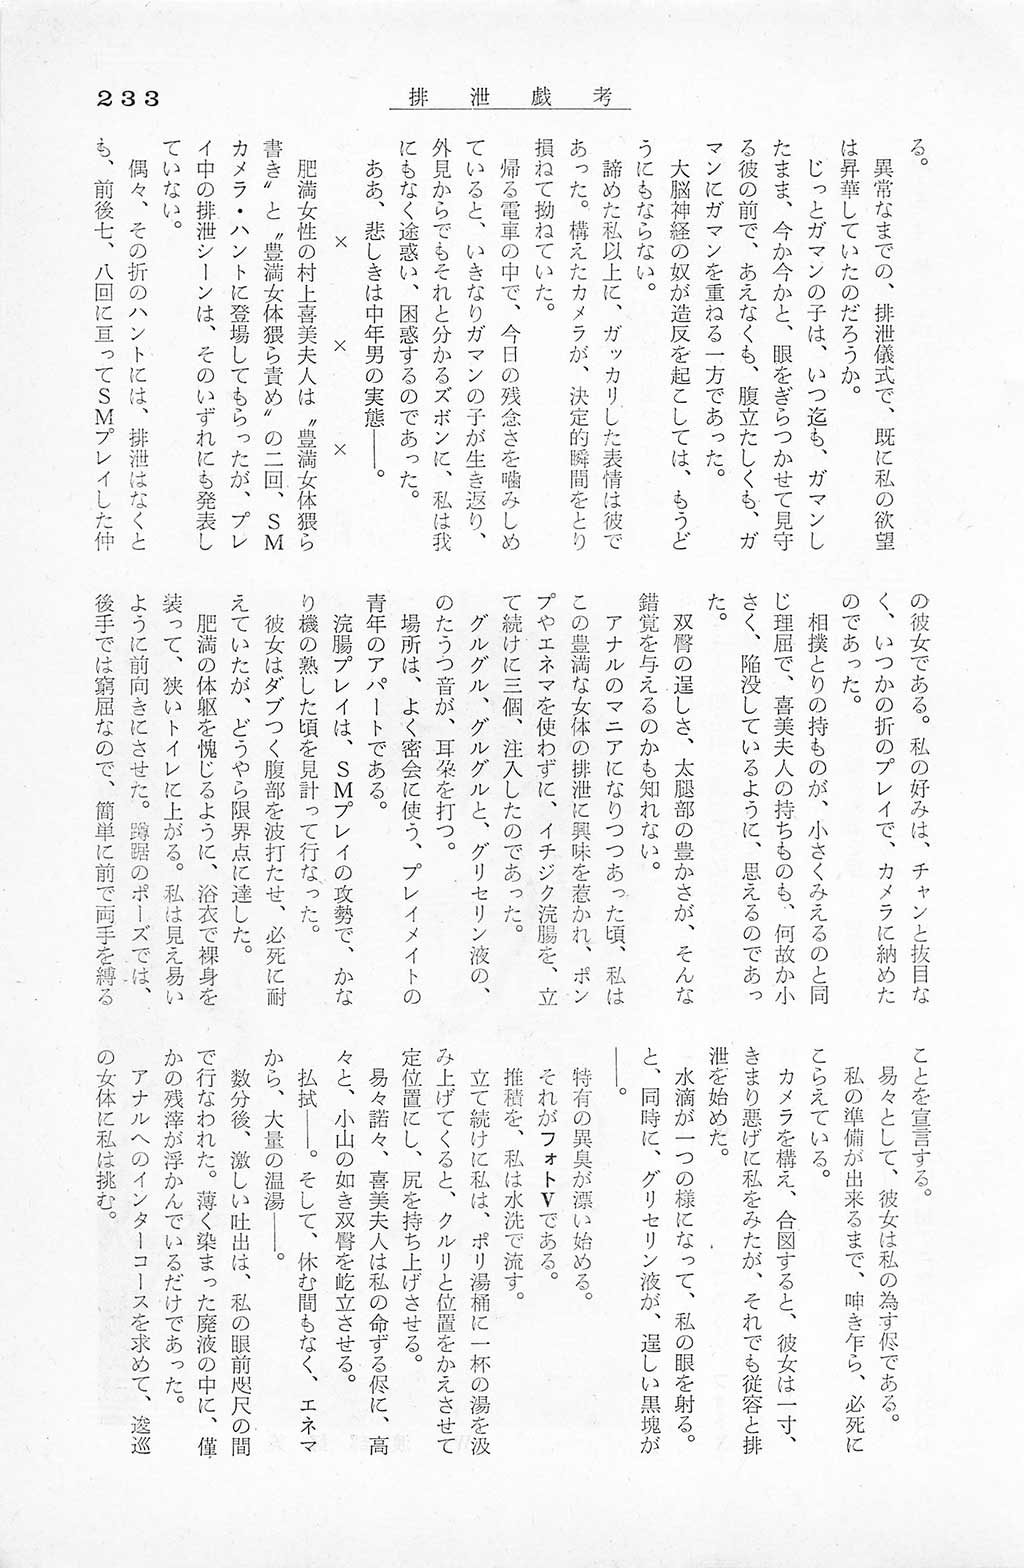 233
排泄戯考
る。
　異常なまでの、排泄儀式で、既に私の欲望
は昇華していたのだろうか。
　じっとガマンの子は、いつ迄も、ガマンし
たまま、今か今かと、眼をぎらつかせて見守
る彼の前で、あえなくも、腹立たしくも、ガ
マンにガマンを重ねる一方であった。
　大脳神経の奴が造反を起こしては、もうど
うにもならない。
　諦めた私以上に、ガッカリした表情は彼で
あった。構えたカメラが、決定的瞬間をとり
損ねて拗ねていた。
　帰る電車の中で、今日の残念さを噛みしめ
ていると、いきなりガマンの子が生き返り、
外見からでもそれと分かるズボンに、私は我
にもなく途惑い、困惑するのであった。
　ああ、悲しきは中年男の実態――。
×　×　×
　肥満女性の村上喜美夫人は〝豊満女体猥ら
書き〟と〝豊満女体猥ら責め〟の二回、ＳＭ
カメラ・ハントに登場してもらったが、プレ
イ中の排泄シーンは、そのいずれにも発表し
ていない。
　偶々、その折のハントには、排泄はなくと
も、前後七、八回に亘ってＳＭプレイした仲
の彼女である。私の好みは、チャンと抜目な
く、いつかの折のプレイで、カメラに納めた
のであった。
　相撲とりの持ものが、小さくみえるのと同
じ理屈で、喜美夫人の持ちものも、何故か小
さく、陥没しているように、思えるのであっ
た。
　双臀の逞しさ、太腿部の豊かさが、そんな
錯覚を与えるのかも知れない。
　アナルのマニアになりつつあった頃、私は
この豊満な女体の排泄に興味を惹かれ、ポン
プやエネマを使わずに、イチジク浣腸を、立
て続けに三個、注入したのであった。
　グルグル、グルグルと、グリセリン液の、
のたうつ音が、耳朶を打つ。
　場所は、よく密会に使う、プレイメイトの
青年のアパートである。
　浣腸プレイは、ＳＭプレイの攻勢で、かな
り機の熟した頃を見計って行なった。
　彼女はダブつく腹部を波打たせ、必死に耐
えていたが、どうやら限界点に達した。
　肥満の体躯を愧じるように、浴衣で裸身を
装って、狭いトイレに上がる。私は見え易い
ように前向きにさせた。蹲踞のポーズでは、
後手では窮屈なので、簡単に前で両手を縛る
ことを宣言する。
　易々として、彼女は私の為す侭である。
　私の準備が出来るまで、呻き乍ら、必死に
こらえている。
　カメラを構え、合図すると、彼女は一寸、
きまり悪げに私をみたが、それでも従容と排
泄を始めた。
　水滴が一つの様になって、私の眼を射る。
と、同時に、グリセリン液が、逞しい黒塊が
――。
　特有の異臭が漂い始める。
　それがフォトＶである。
　推積を、私は水洗で流す。
　立て続けに私は、ポリ湯桶に一杯の湯を汲
み上げてくると、クルリと位置をかえさせて
定位置にし、尻を持ち上げさせる。
　易々諾々、喜美夫人は私の命ずる侭に、高
々と、小山の如き双臀を屹立させる。
　払拭――。そして、休む間もなく、エネマ
から、大量の温湯――。
　数分後、激しい吐出は、私の眼前咫尺の間
で行なわれた。薄く染まった廃液の中に、僅
かの残滓が浮かんでいるだけであった。
　アナルへのインターコースを求めて、逡巡
の女体に私は挑む。